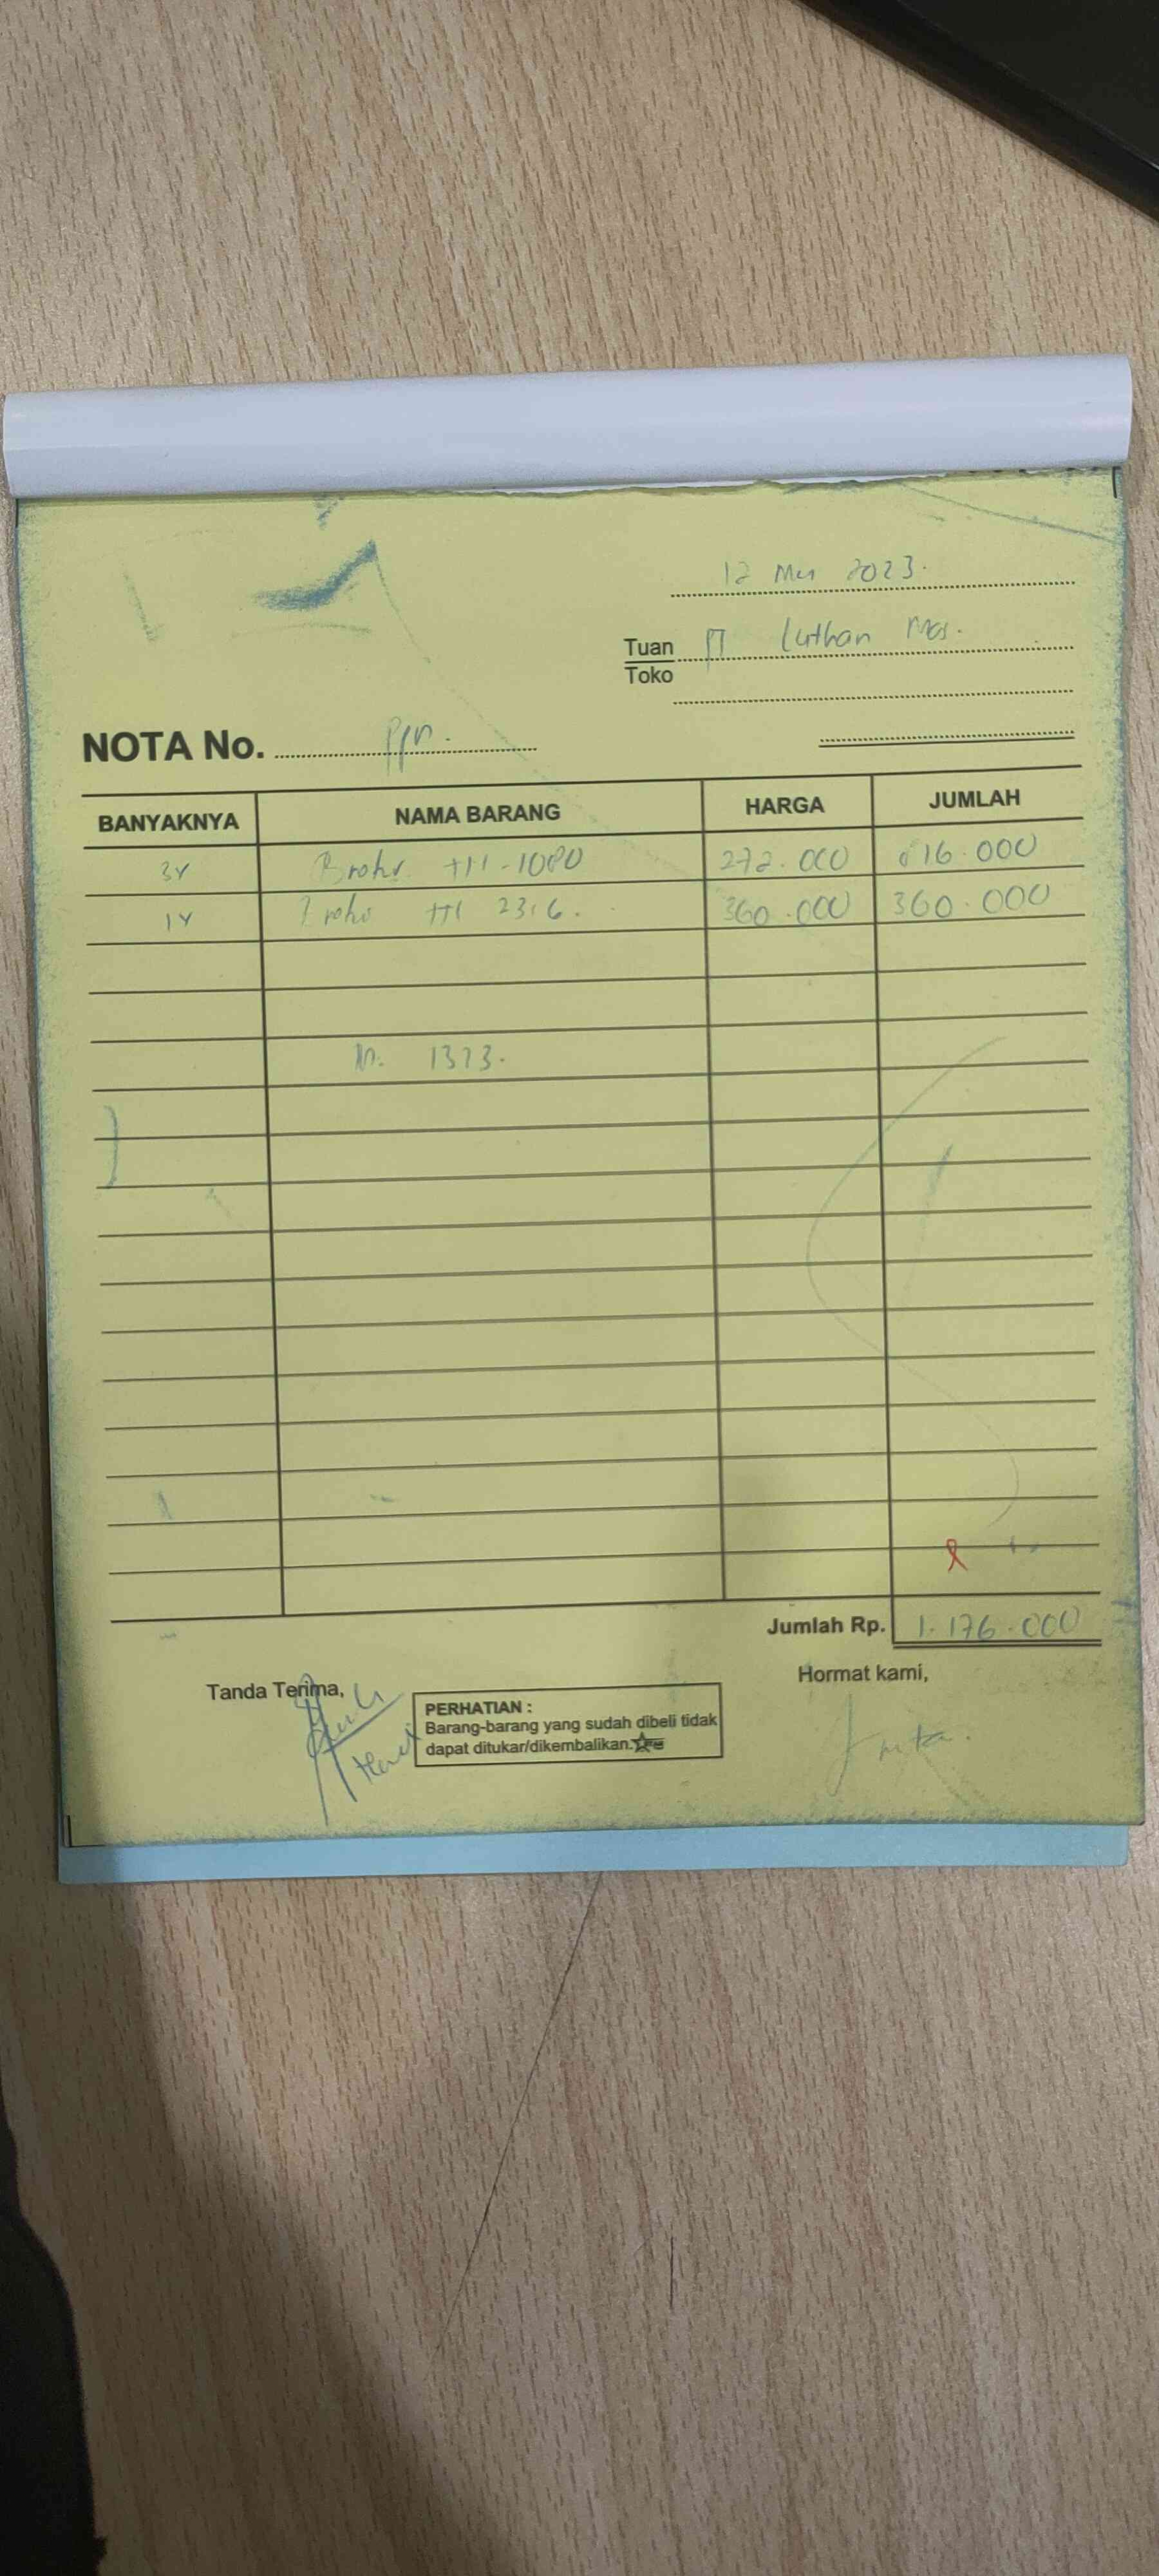 12 Mei 2023.
Tuan
Toko
Luthan Mas.
NOTA No. Ppn.
BANYAKNYA NAMA BARANG HARGA JUMLAH
3x 1080 272.000 816.000
1x 2316. 360.000 360.000
1373.
Jumlah Rp. 1.176.000
Tanda Terima, Hormat kami,
PERHATIAN :
Barang-barang yang sudah dibeli tidak
dapat ditukar/dikembalikan.